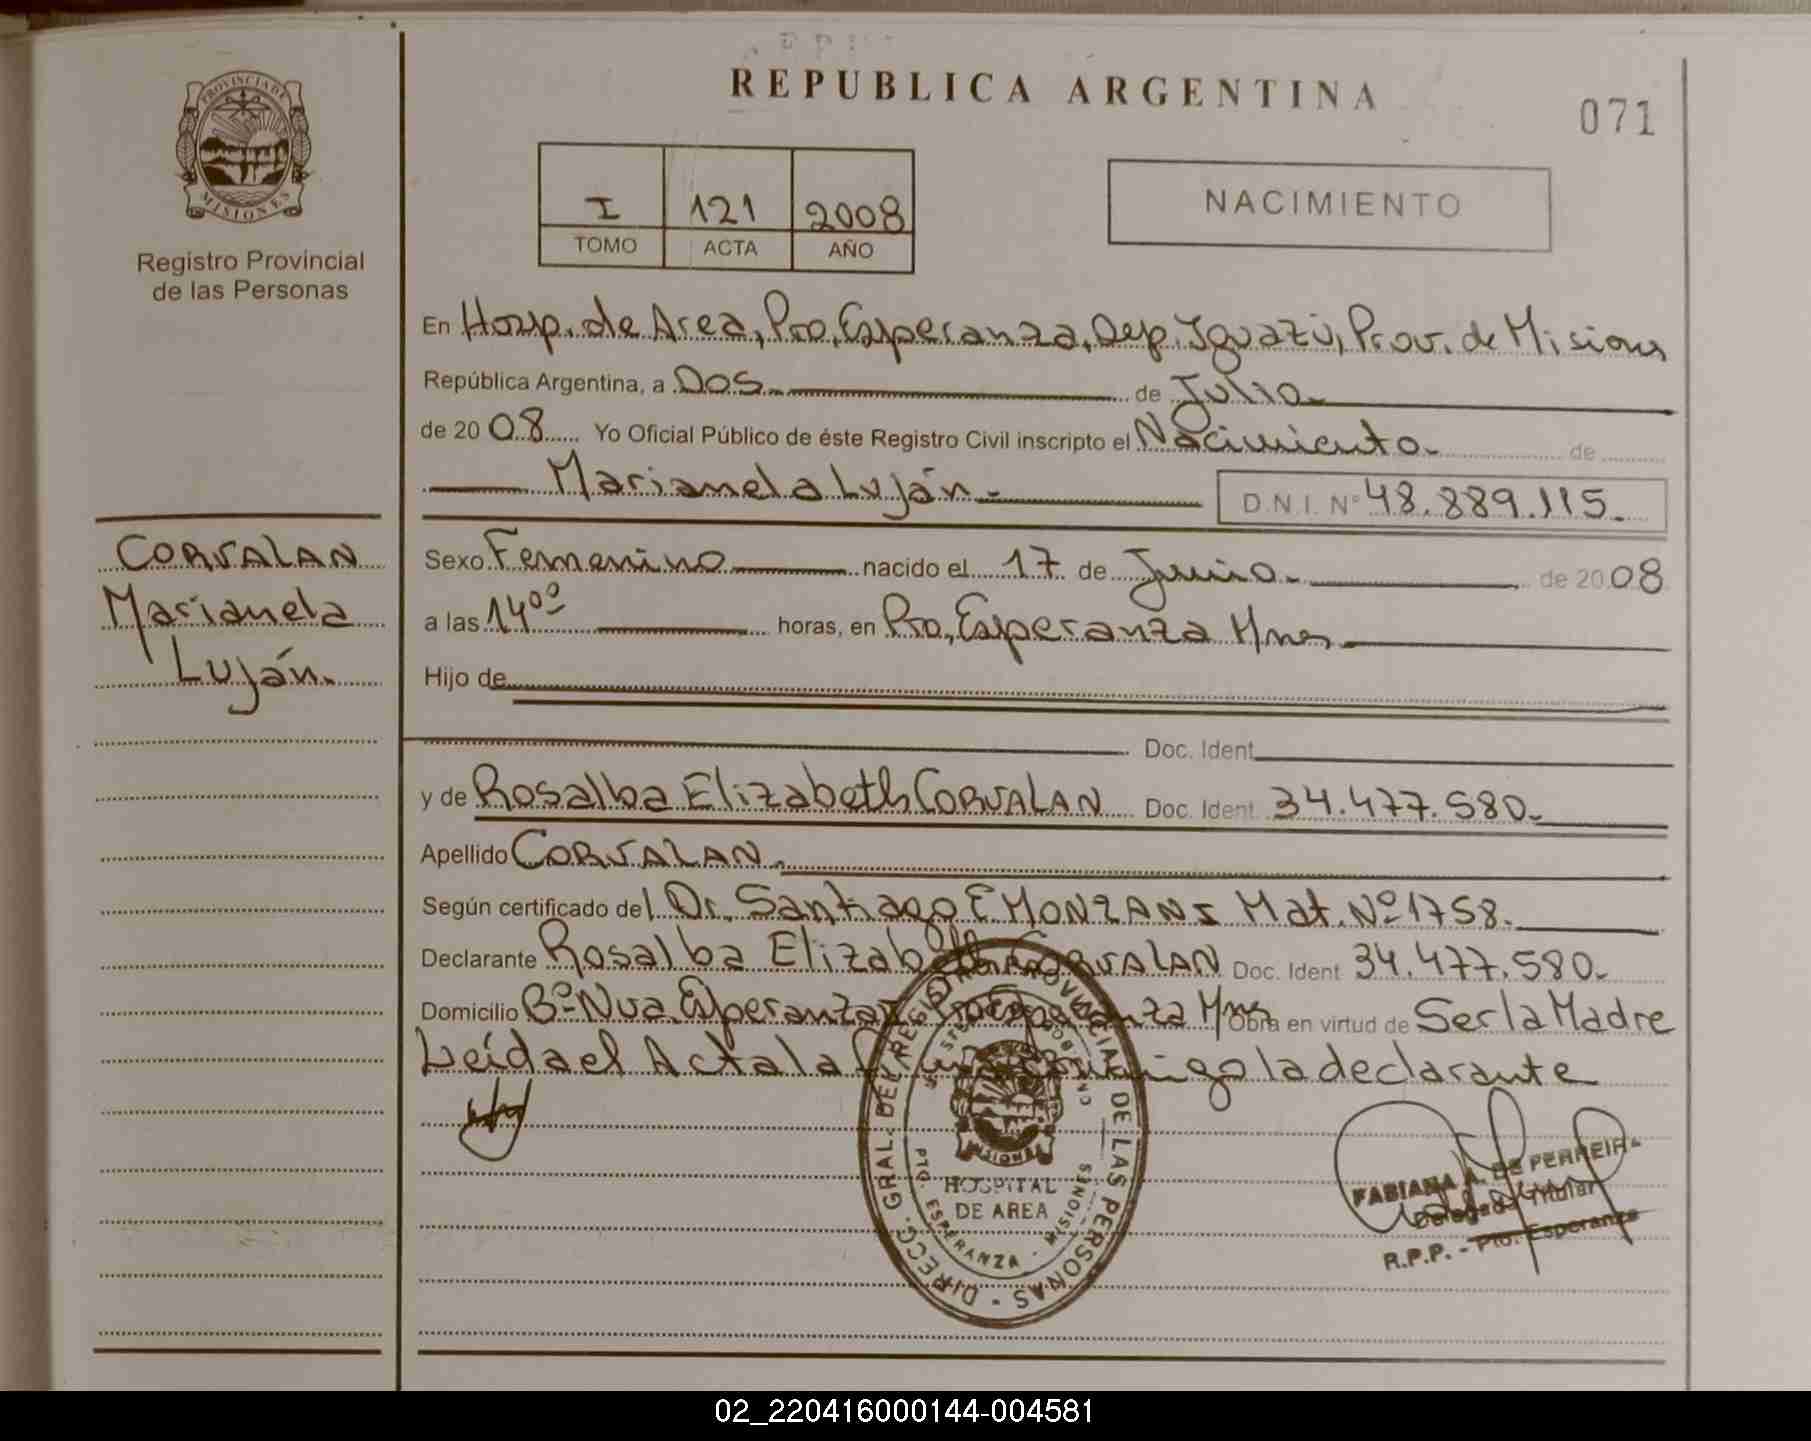 REPUBLICA ARGENTINA
071
PROVINCIA DE
MISIONES
Registro Provincial
de las Personas
I 121 2008
TOMO ACTA AÑO
NACIMIENTO
En Hosp. de Area, Pto, Esperanza, Dep. Iguazú, Prov. de Misiones
República Argentina, a Dos. de Julio.
de 20 08 Yo Oficial Público de éste Registro Civil inscripto el Nacimiento. de
Marianela Luján.
D.N.I. N° 48.889.115.
CORVALAN
Marianela
Luján.
Sexo Femenino nacido el 17 de Junio. de 20 08
a las 14°° horas, en Pto, Esperanza Mnes
Hijo de
Doc. Ident
y de Rosalba Elizabeth CORVALAN Doc. Ident. 34.477.580.
Apellido CORVALAN.
Según certificado del Dr. Santiago E MONZANI Mat. Nº 1758.
Declarante Rosalba Elizabeth CORVALAN Doc. Ident 34.477.580.
Domicilio Bº Nva. Esperanza Pto Esperanza Mnes Obra en virtud de Ser la Madre
Leída el Acta la firma conmigo la declarante
DIRECC. GRAL. DEL REGISTRO PROVINCIAL DE LAS PERSONAS
MISIONES
HOSPITAL
DE AREA
PTO. ESPERANZA - MISIONES
FABIANA A. DE FERREIRA
Delegada Titular
R.P.P. - Pto. Esperanza
02_220416000144-004581